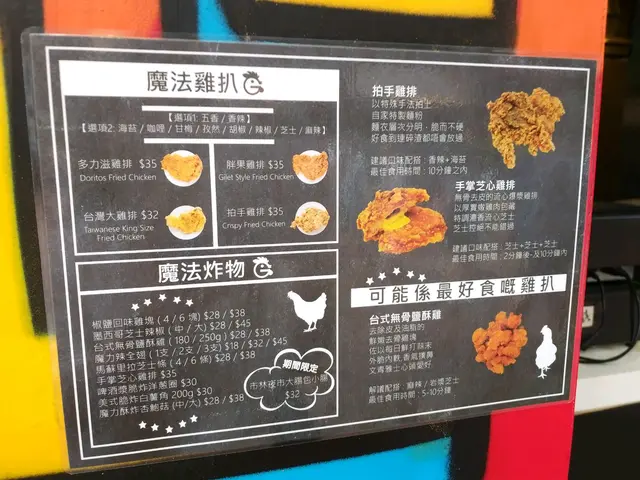 魔法雞扒
【選項1: 五香 / 香辣】
【選項2: 海苔 / 咖哩 / 甘梅 / 孜然 / 胡椒 / 辣椒 / 芝士 / 麻辣】
多力滋雞排 $35
Doritos Fried Chicken
胖果雞排 $35
Gilet Style Fried Chicken
台灣大雞排 $32
Taiwanese King Size
Fried Chicken
拍手雞排 $35
Crispy Fried Chicken
魔法炸物
椒鹽回味雞塊 ( 4 / 6 塊) $28 / $38
墨西哥芝士辣椒 (中 / 大) $28 / $45
台式無骨鹽酥雞 (180 / 250g) $28 / $38
魔力辣全翅 (1支 / 2支 / 3支) $18 / $32 / $45
馬蘇里拉芝士條 (4 / 6 條) $28 / $38
手掌芝心雞排 $35
啤酒漿脆炸洋蔥圈 $30
美式脆炸白薯角 200g $30
魔力酥炸杏鮑菇 (中/大) $28 / $38
期間限定
市林夜市大腸包小腸
$32
拍手雞排
以特殊手法拍上
自家特製麵粉
麵衣層次分明，脆而不硬
好食到連碎渣都唔會放過
建議口味配搭 : 香辣+海苔
最佳食用時間 : 10分鐘之內
手掌芝心雞排
無骨去皮的流心爆漿雞排
以厚實嫩雞肉包藏
特調濃香流心芝士
芝士控絕不能錯過
建議口味配搭 : 芝士+芝士+芝士
最佳食用時間 : 2分鐘後-及10分鐘內
可能係最好食嘅雞扒
台式無骨鹽酥雞
去除皮及油脂的
鮮嫩去骨雞塊
佐以每日鮮打蒜末
外脆內軟，香氣撲鼻
文青雅士心頭愛好
解議配搭 : 麻辣 / 岩漿芝士
最佳食用時間 : 5-10分鐘